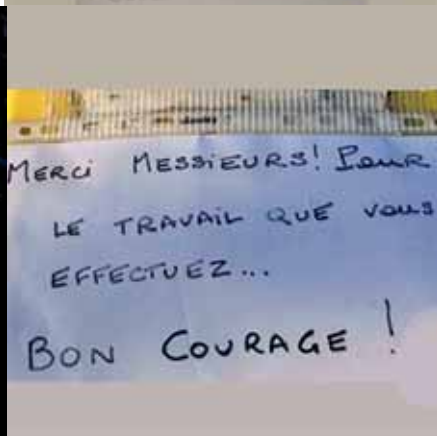 MERCi MESSiEURS! Pour
LE TRAVAiL QUE vous
EFFECTUEZ...
BON COURAGE !